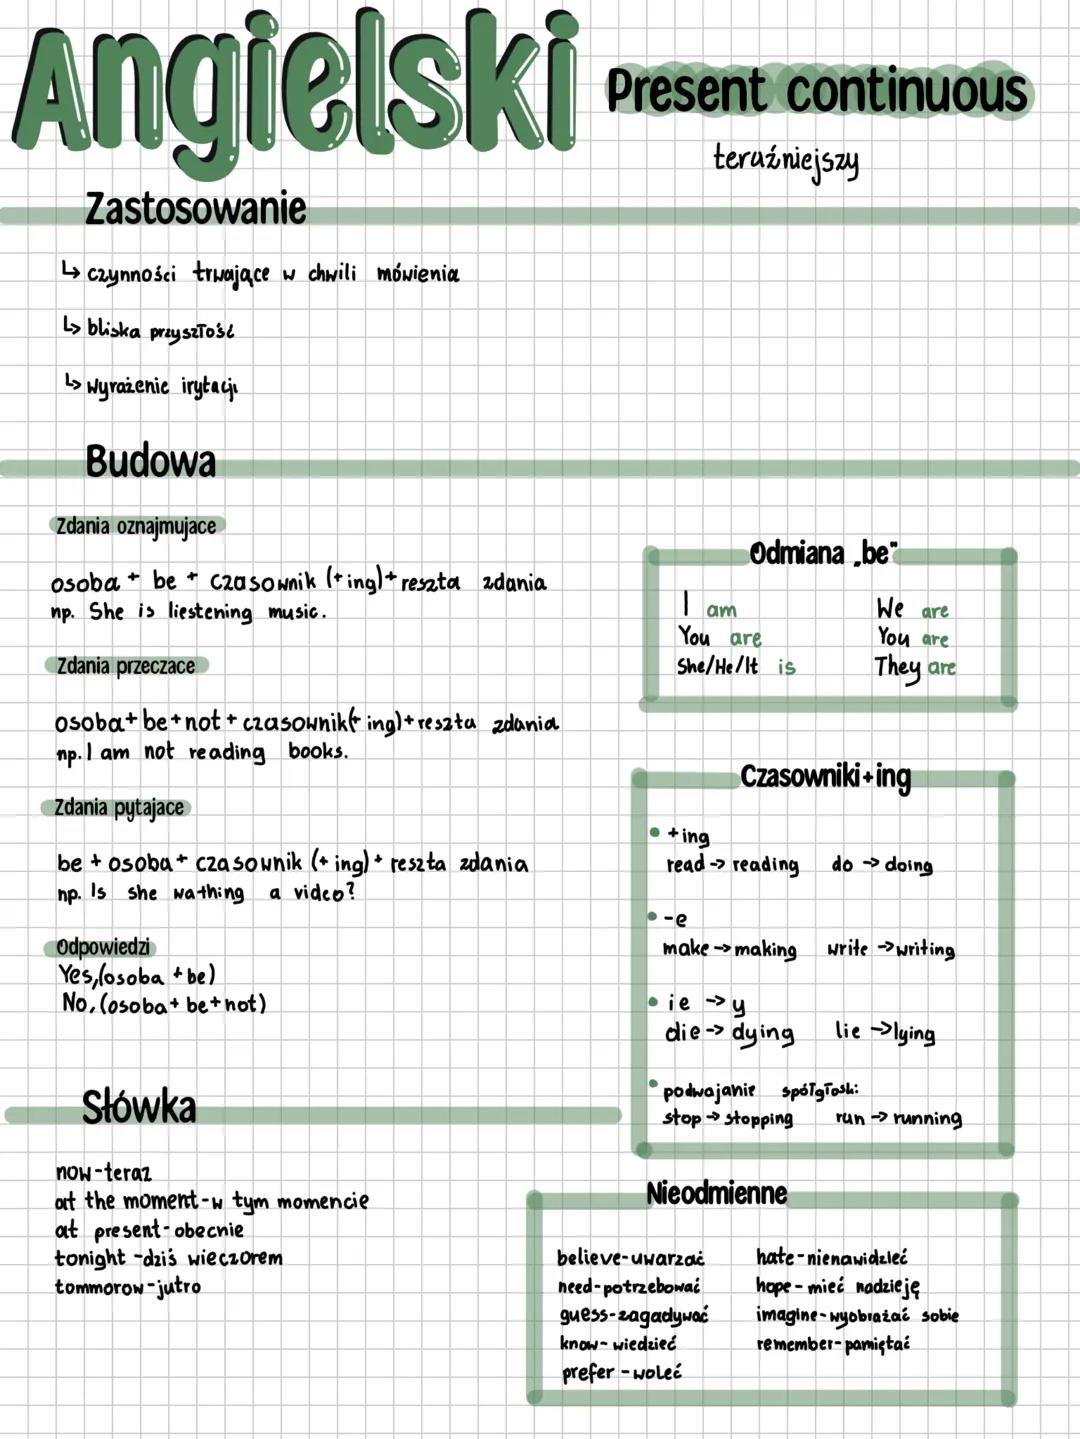 Angielski
Present continuous
teraźniejszy
Zastosowanie
↳ czynności trwające w chwili mówienia
↳ bliska przyszłość
↳ wyrażenie irytacji
Budowa
Zdania oznajmujace
osoba + be + czasownik (+ing)+reszta zdania
np. She is liestening music.
Zdania przeczace
osoba+be+not+czasownik(+ing)+reszta zdania
np. I am not reading books.
Zdania pytajace
be + osoba + czasownik (+ing) + reszta zdania
np. Is she wathing a video?
Odpowiedzi
Yes,(osoba + be)
No,(osoba + be+not)
Odmiana „be"
I am We are
You are You are
She/He/It is They are
Czasowniki+ing
• +ing
read → reading do → doing
• -e
make → making write → writing
• ie → y
die → dying lie → lying
• podwajanie spółgłoski:
stop → stopping run → running
Słówka
now-teraz
at the moment-w tym momencie
at present-obecnie
tonight -dziś wieczorem
tommorow-jutro
Nieodmienne
believe-uwarzać hate-nienawidzieć
need-potrzebować hope- mieć nadzieję
guess-zagadywać imagine-wyobrażać sobie
know- wiedzieć remember-pamiętać
prefer - woleć